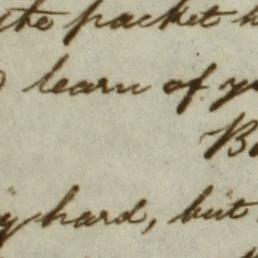 the packet
learn of
hard, but